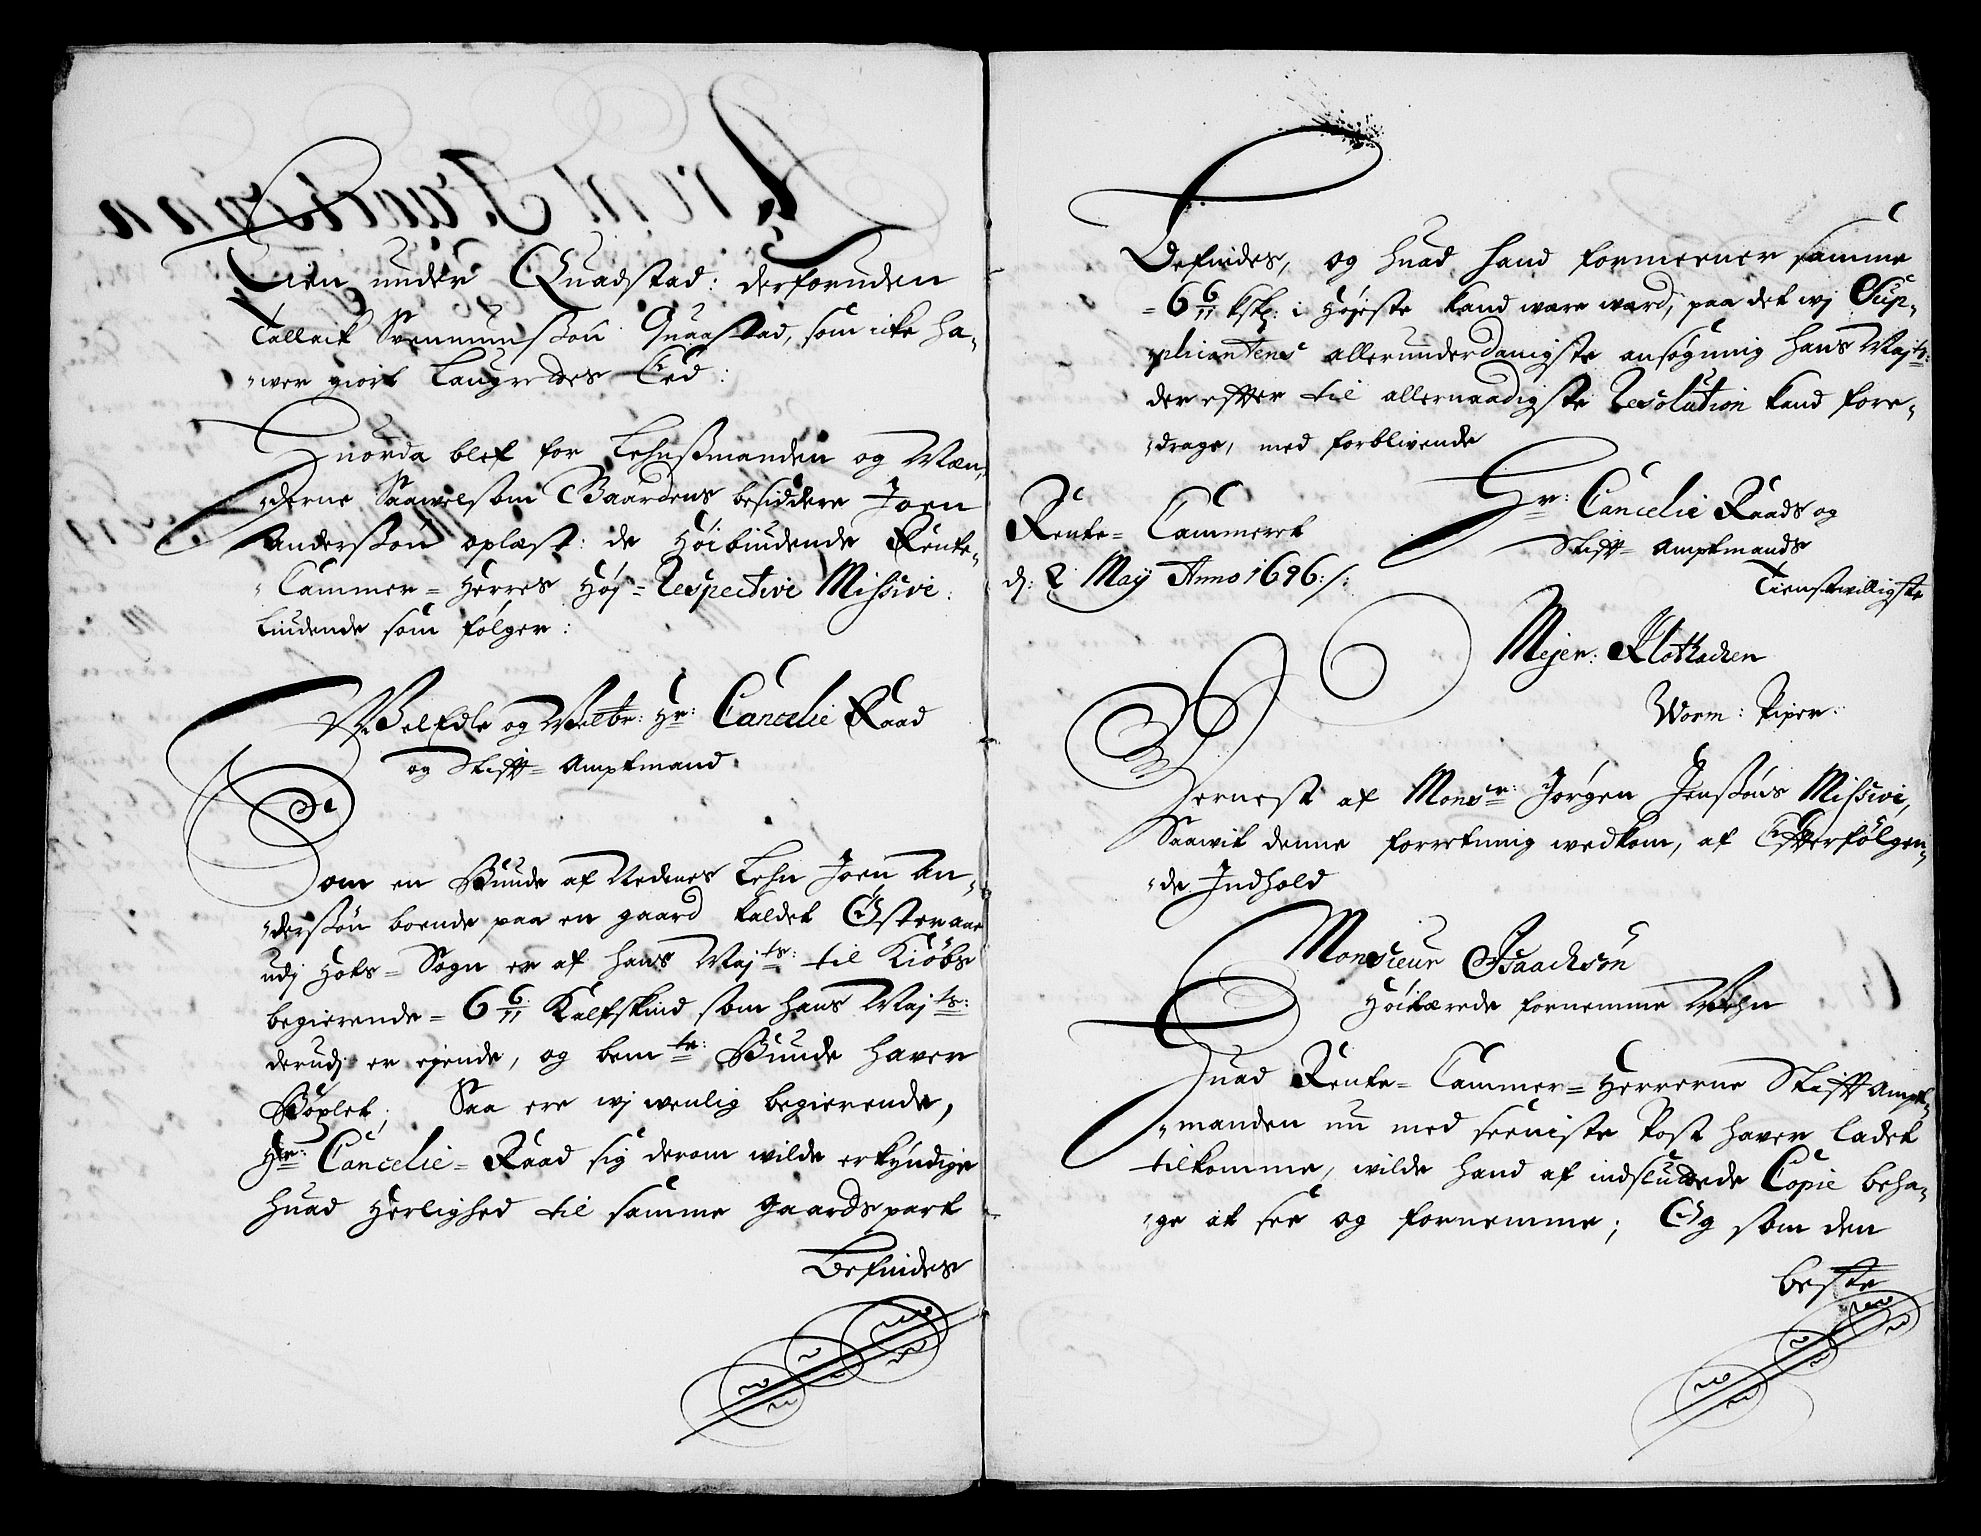 Eien under Quadstad: derforuden
Tallack Svennungssøn Quastad, som icke ha-
-wer giort Laugrettes Eed:
Huorda blef for Lehnssmanden og Mæn-
-derne Saawelsom Gaardens besiddere Joen
Anderssøn oplæst: de Høibiudende Rente-
-Cammer-Herres Høj-Respective Missive:
liudende som følger:
WelEdle og Welbr: Hr: Cancelie Raad
og Stifft-Amptmand
Som en Bunde af Nedenes Lehn Joen An-
-derssøn boende paa en gaard kaldet Østeraae
udj Hols-Sogn er af Hans Majts: til Kiøbs
begierende- 6 6/11 Kalfskind som Hans Majts:
derudj er ejende, og bemte: Bunde haver
Bøxlet; Saa ere wj wenlig begierende,
Hr: Cancelie-Raad sig derom wilde erkyndige
huad Herlighed til samme gaardspart
Befindes
Befindes, og huad hand formeener samme
-6 6/11 ksk: i Højeste kand ware ward, paa det wj Sup-
-plicantens allerunderdanigste ansøgning Hans Majts:
derefter til allernaadigste Resolution kand fore-
-drage, med forblivende
Rente-Cammeret
d: 2 Maij Anno 1696:/:
Hr: Cancelie Raads og
Stifft-Amptmands
Tienstwilligste
Mejer: Klothacken
Worm: Piper:
Hernest af Monsr: Jørgen Jenssøns Missive,
Saawit denne forretning wedkom, af Efterfølgen-
-de Indhold
Monsieur Isaachsøn
Høitærede fornemme Wehn
Huad Rente-Cammer-Herrerne Stifft Ampt-
-manden nu med seeniste Post haver ladet
tilkomme, wilde hand af indsluttede Copie beha-
-ge at see og fornemme; Og som den
beste